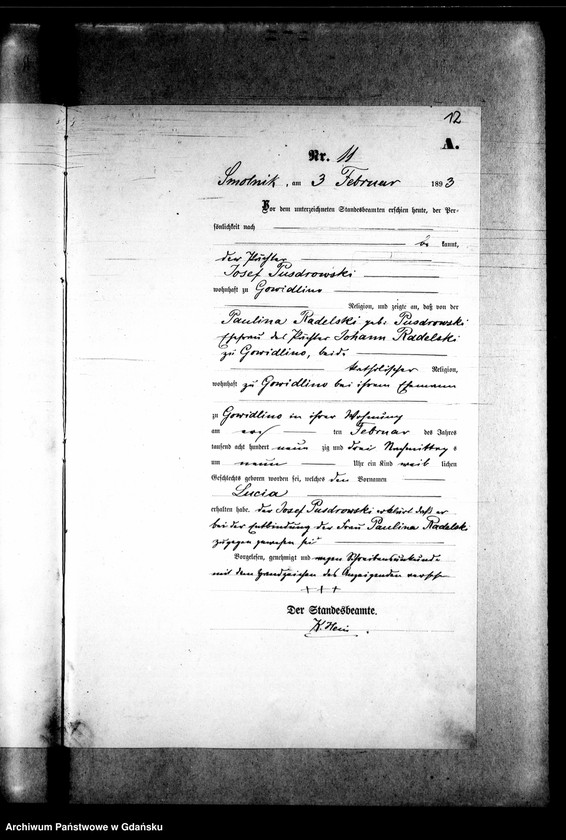 12
A.
Nr. 11
Smolnik, am 3 Februar 1893
Vor dem unterzeichneten Standesbeamten erschien heute, der Per-
sönlichkeit nach
be kannt,
der Pächter
Josef Pusdrowski
wohnhaft zu Gowidlino
Religion, und zeigte an, daß von der
Paulina Radelski geb. Pusdrowski
Ehefrau des Pächter Johann Radelski
zu Gowidlino, beide
katholischer Religion,
wohnhaft zu Gowidlino bei ihrem Ehemann
zu Gowidlino in ihrer Wohnung
am ten Februar des Jahres
tausend acht hundert neun zig und drei Nachmittag s
um neun Uhr ein Kind weib lichen
Geschlechts geboren worden sei, welches den Vornamen
Lucia
erhalten habe. der Josef Pusdrowski erklärt daß er
bei der Entbindung der Frau Paulina Radelsk
zugegen gewesen sei
Vorgelesen, genehmigt und wegen Schreibensunkunde
mit dem Handzeichen des Anzeigenden
+ + +
Der Standesbeamte.
K. Hein
Archiwum Państwowe w Gdańsku